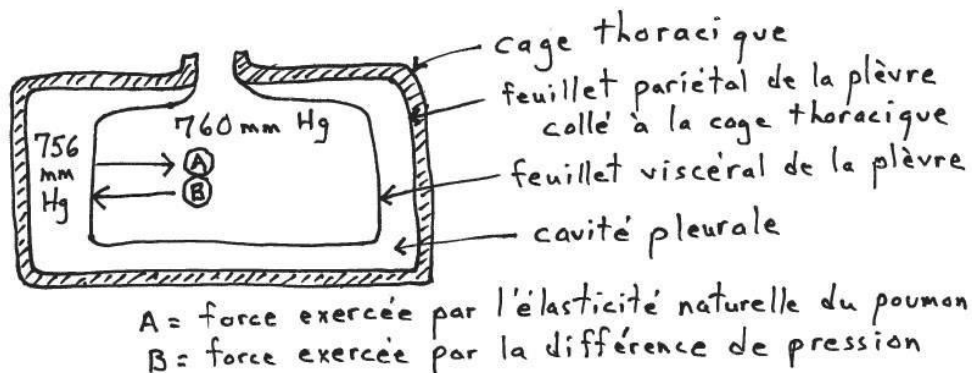 cage thoracique
feuillet pariétal de la plèvre
collé à la cage thoracique
feuillet viscéral de la plèvre
cavité pleurale
760 mm Hg
756
mm
Hg
A
B
A = force exercée par l'élasticité naturelle du poumon
B = force exercée par la différence de pression